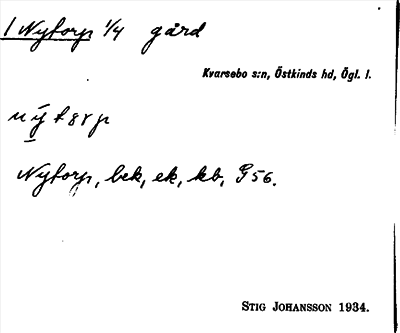 1 Nytorp 1/4 gård
Kvarsebo s:n, Östkinds hd, Ögl. l.
Nytorp, bek, ek, kb, G 56.
STIG JOHANSSON 1934.